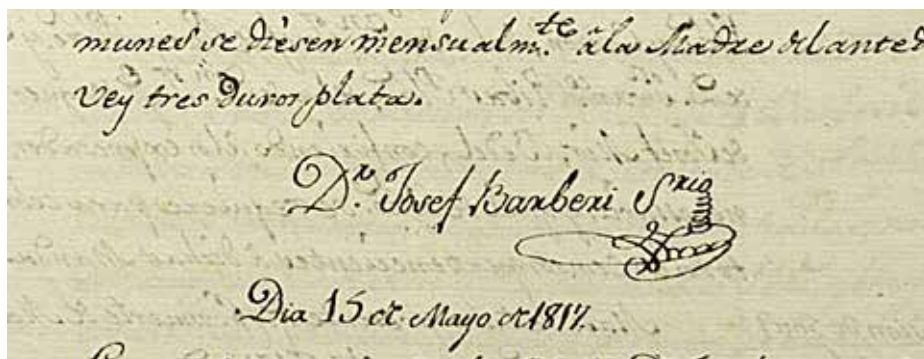 munes se diesen mensualm.te â la Madre del anted
Vey tres duros plata.
D.r Josef Barberi Srio
Dia 15 de Mayo de 1817.